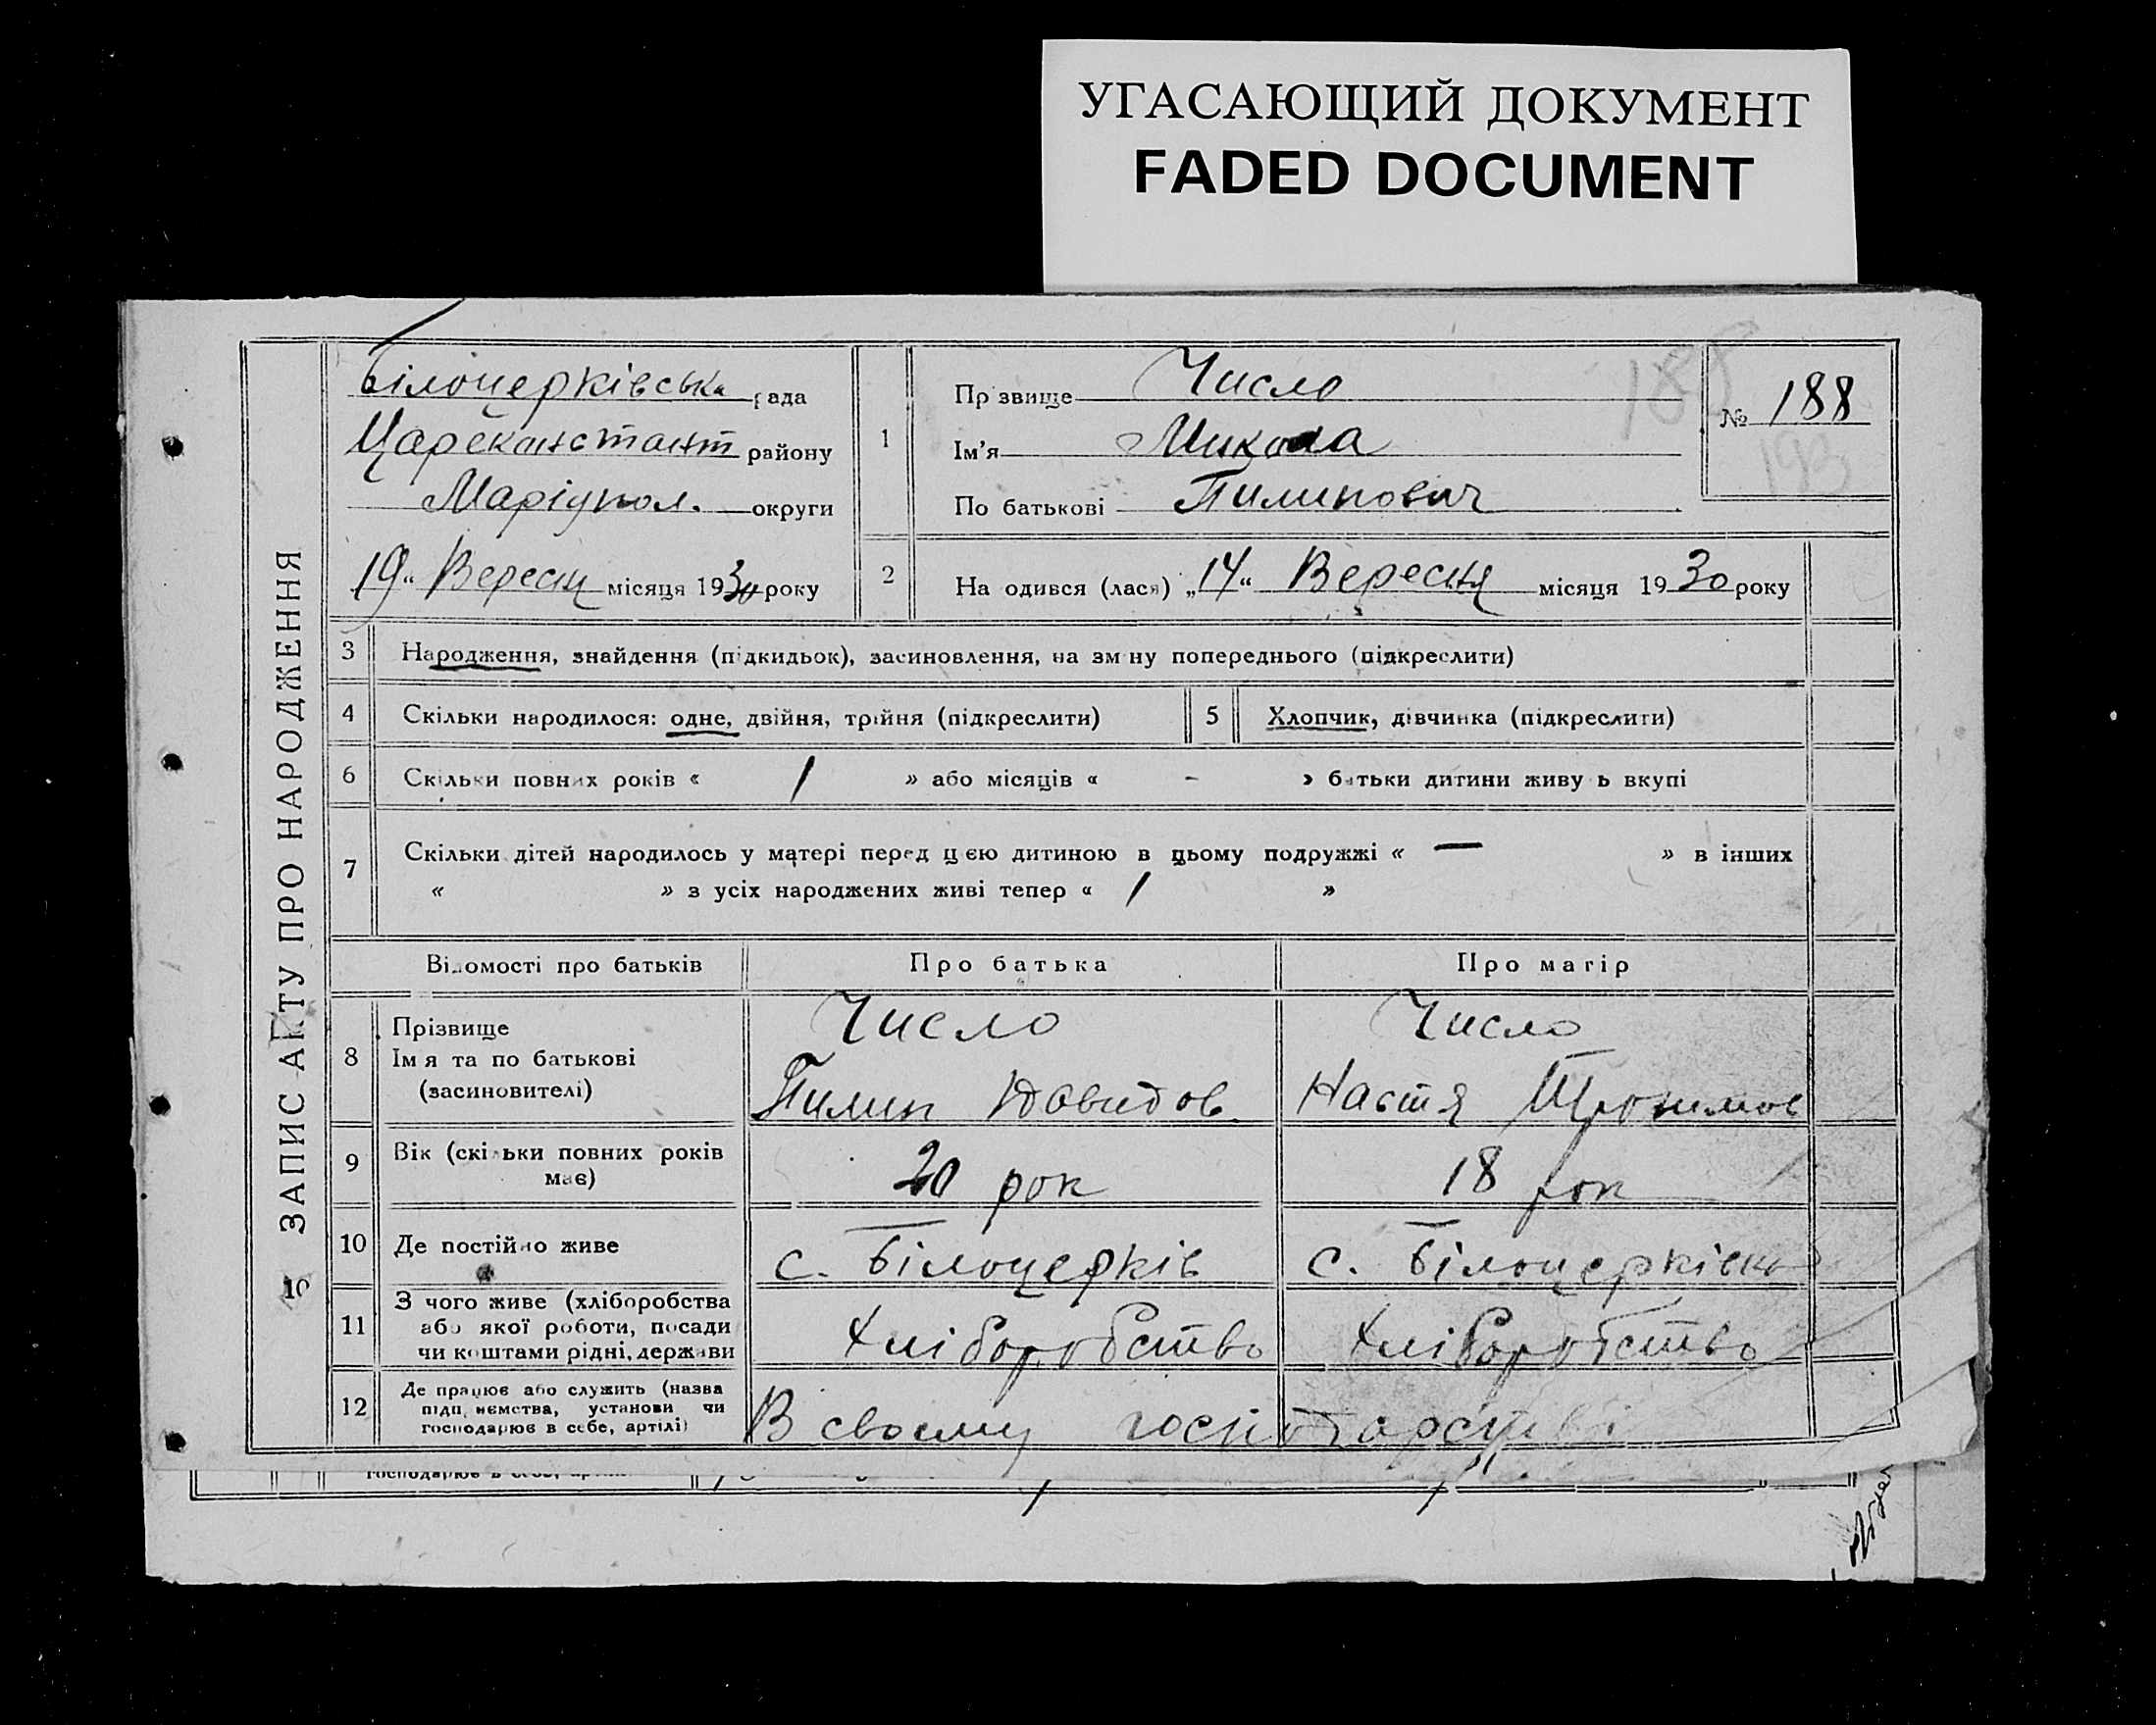 УГАСАЮЩИЙ ДОКУМЕНТ
FADED DOCUMENT
ЗАПИС АКТУ ПРО НАРОДЖЕННЯ
10
Білоцерківська рада
Цареконстант району
Маріупол. округи
19 " Вересня місяця 1930 року
1
Прізвище Число
Ім'я Микола
По батькові Пилипович
188
№ 188
193
2
На одився (лася) „ 14 " Вересня місяця 19 30 року
3 Народження, знайдення (підкидьок), засиновлення, на зміну попереднього (підкреслити)
4 Скільки народилося: одне, двійня, трійня (підкреслити)
5 Хлопчик, дівчинка (підкреслити)
6 Скільки повних років « 1 » або місяців « - » батьки дитини живуть вкупі
7 Скільки дітей народилось у матері перед цією дитиною в цьому подружжі « — » в інших
« » з усіх народжених живі тепер « 1 »
Відомості про батьків Про батька Про матір
8 Прізвище
Ім я та по батькові
(засиновителі)
Число
Пилип Давидов
Число
Настя Трохимов
9 Вік (скільки повних років
має)
20 рок
18 рок
10 Де постійно живе
с. Білоцерків
с. Білоцерківка
11 З чого живе (хліборобства
або якої роботи, посади
чи коштами рідні, держави
Хліборобство
Хліборобство
12 Де працює або служить (назва
підприємства, установи чи
господарює в себе, артілі)
В своєму господарстві
господарює в себе,